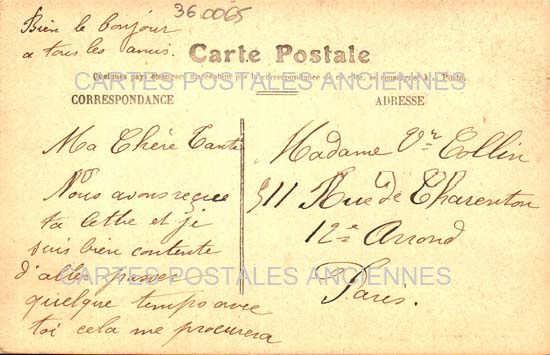 36 0065
Bien le bonjour
a tous les amis.
Carte Postale
Quelques pays étrangers n'acceptant pas la correspondance de ce côté, se renseigner à la Poste.
CARTES POSTALES ANCIENNES
CORRESPONDANCE
ADRESSE
Ma Chère Tante
Nous avons reçue
ta lettre et je
suis bien contente
d'aller passer
quelque temps avec
toi cela me procurera
Madame Vve Collin
311 Rue de Charenton
12e Arrond
Paris.
CARTES POSTALES ANCIENNES